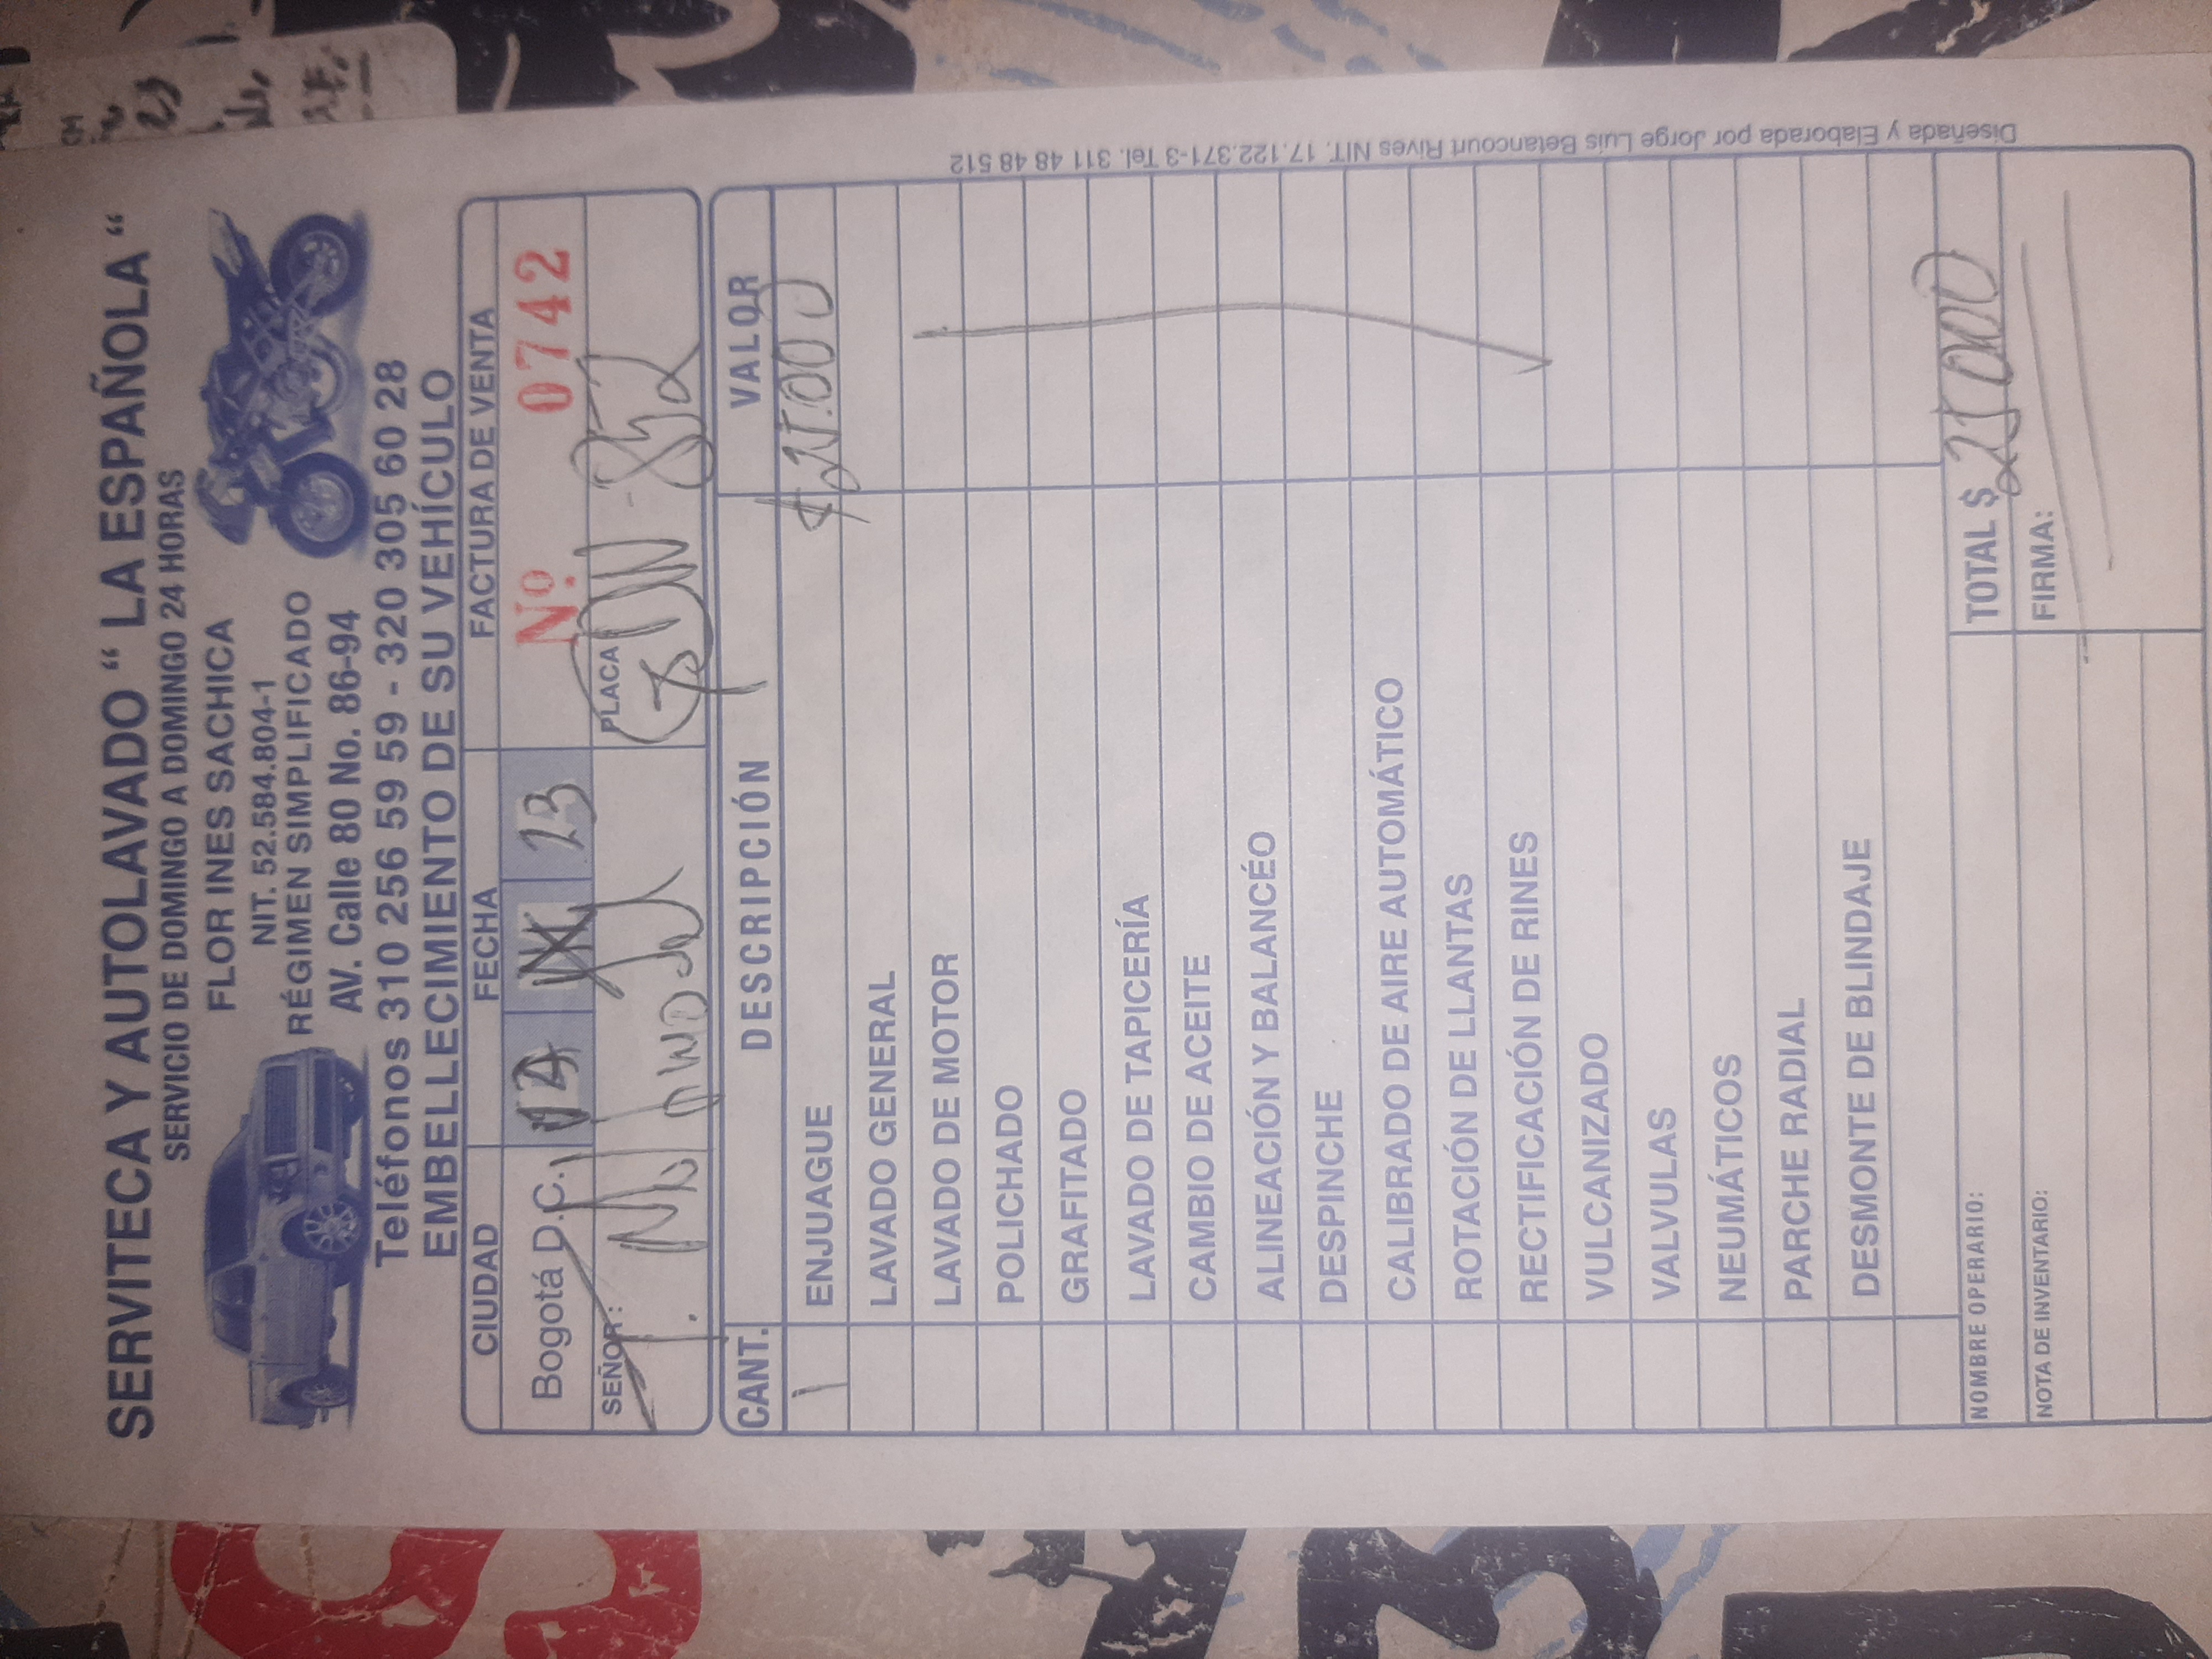 SERVITECA Y AUTOLAVADO “ LA ESPAÑOLA “
SERVICIO DE DOMINGO A DOMINGO 24 HORAS
FLOR INES SACHICA
NIT. 52.584.804-1
RÉGIMEN SIMPLIFICADO
AV. Calle 80 No. 86-94
Teléfonos 310 256 59 59 - 320 305 60 28
EMBELLECIMIENTO DE SU VEHÍCULO
CIUDAD FECHA FACTURA DE VENTA
Bogotá D.C. 23 Nº. 0742
SEÑOR: PLACA - 852
CANT. DESCRIPCIÓN VALOR
1 ENJUAGUE $ 25.000
LAVADO GENERAL
LAVADO DE MOTOR
POLICHADO
GRAFITADO
LAVADO DE TAPICERÍA
CAMBIO DE ACEITE
ALINEACIÓN Y BALANCÉO
DESPINCHE
CALIBRADO DE AIRE AUTOMÁTICO
ROTACIÓN DE LLANTAS
RECTIFICACIÓN DE RINES
VULCANIZADO
VALVULAS
NEUMÁTICOS
PARCHE RADIAL
DESMONTE DE BLINDAJE
NOMBRE OPERARIO: TOTAL $ 25000
NOTA DE INVENTARIO: FIRMA:
Diseñada y Elaborada por Jorge Luis Betancourt Rives NIT. 17.122.371-3 Tel. 311 48 48 512